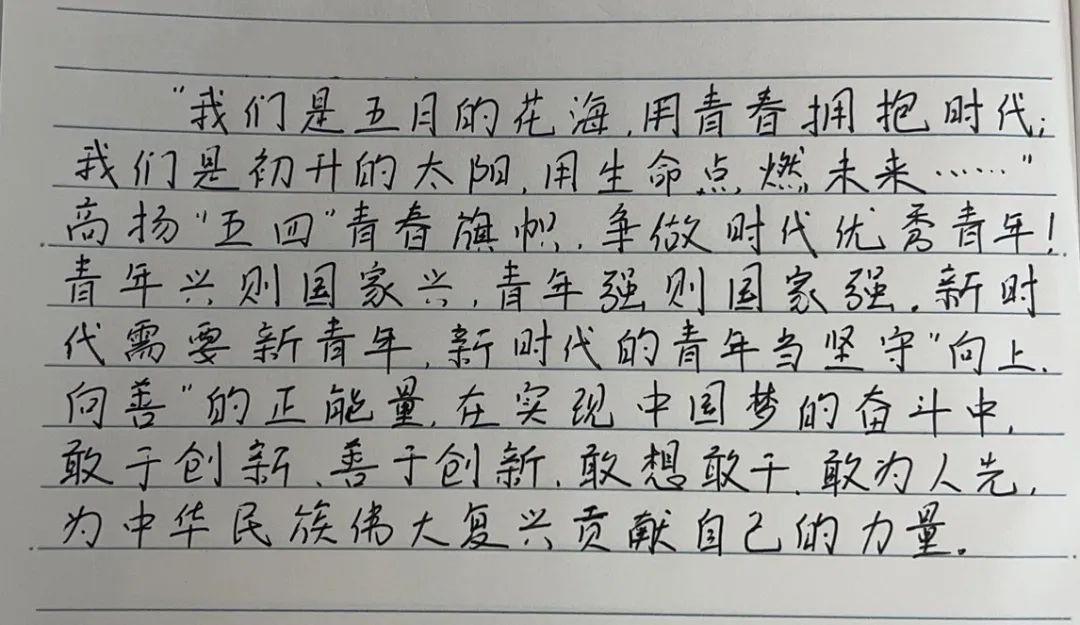 “我们是五月的花海，用青春拥抱时代；
我们是初升的太阳，用生命点燃未来……”
高扬“五四”青春旗帜，争做时代优秀青年！
青年兴则国家兴，青年强则国家强。新时
代需要新青年，新时代的青年当坚守“向上、
向善”的正能量，在实现中国梦的奋斗中，
敢于创新、善于创新，敢想敢干、敢为人先，
为中华民族伟大复兴贡献自己的力量。